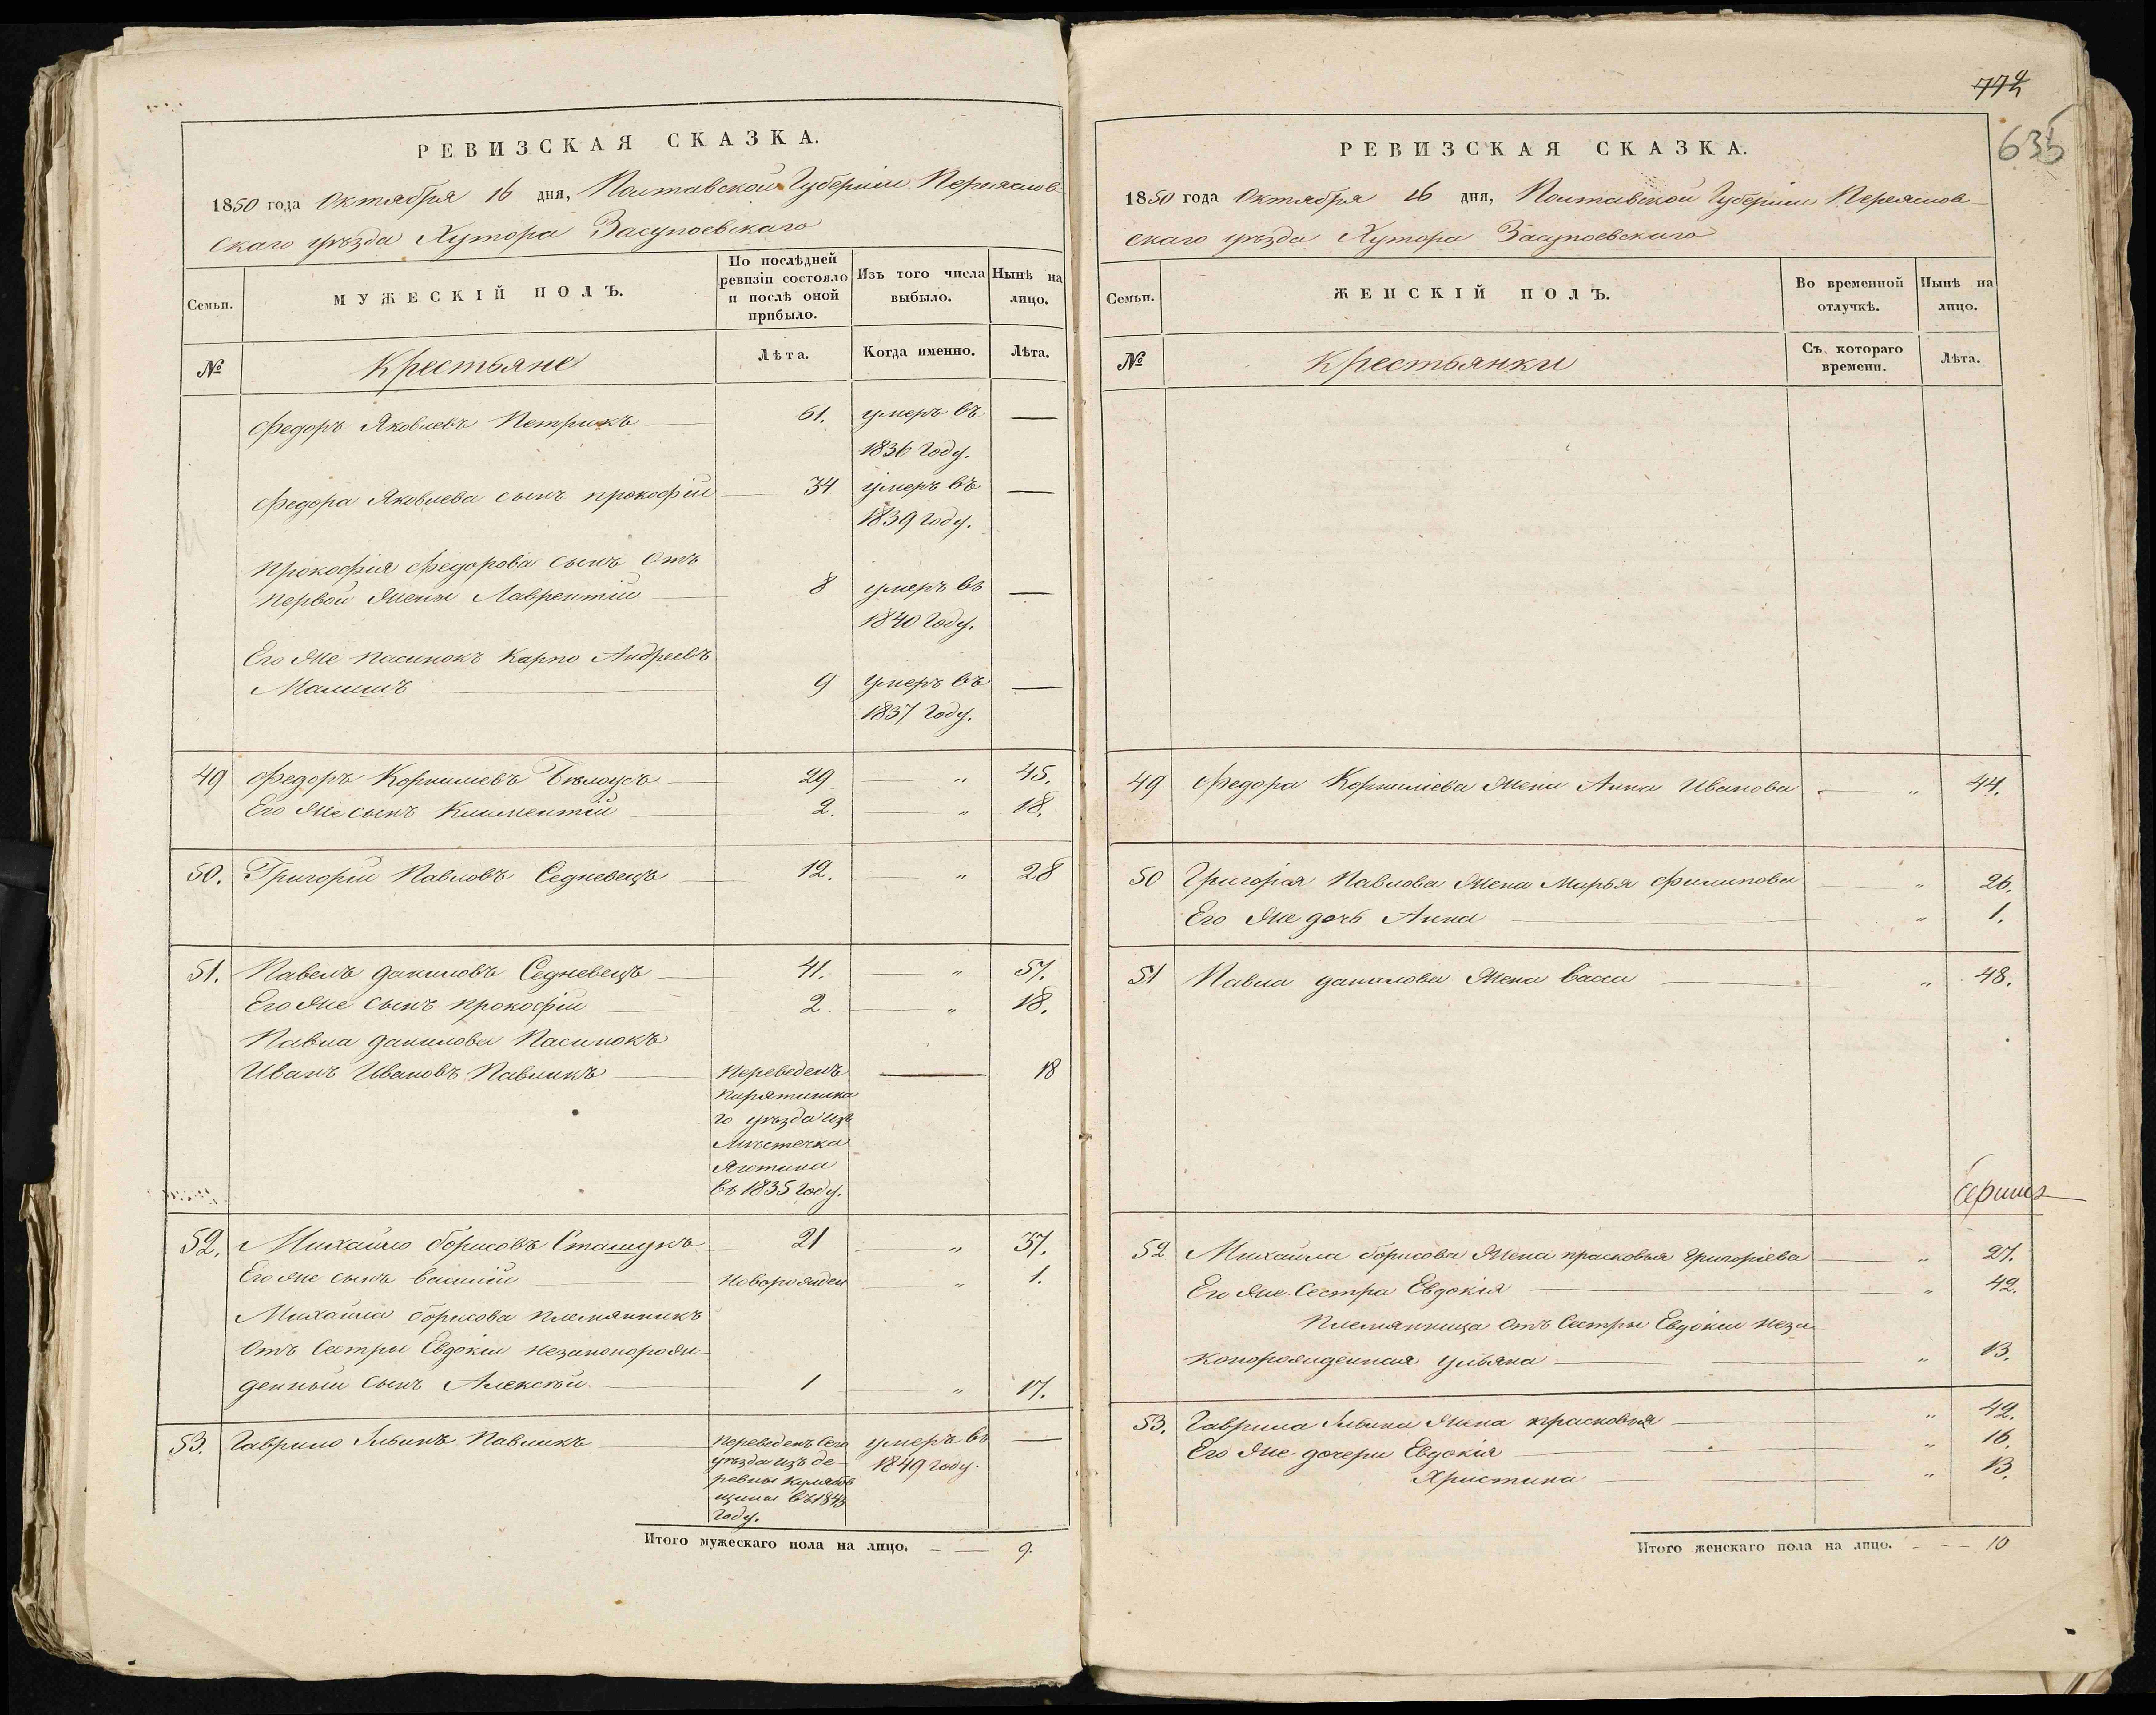 РЕВИЗСКАЯ СКАЗКА.
1850 года Октября 16 дня, Полтавской Губерніи Переяслов-
скаго уѣзда Хутора Засупоевскаго
Семьи.
МУЖЕСКІЙ ПОЛЪ.
По послѣдней
ревизіи состояло
и послѣ оной
прибыло.
Изъ того числа
выбыло.
Нынѣ на
лицо.
№
Крестьяне
Лѣта.
Когда именно.
Лѣта.
Федоръ Яковлевъ Петрикъ 61. умеръ въ —
1836 году.
Федора Яковлева сынъ прокофій 34 умеръ въ —
1839 году.
прокофія Федорова сынъ Отъ
первой жены Лаврентій 8 умеръ въ —
1840 году.
Его же пасинокъ Карпо Андреевъ
Малишъ 9 умеръ въ —
1837 году.
49 Федоръ Корниліевъ Бѣлоусъ 29 — „ 45.
Его же сынъ Климентій 2. — „ 18.
50. Григорій Павловъ Седневецъ 12. — „ 28
51. Павелъ даниловъ Седневецъ 41. — „ 57.
Его же сынъ прокофій 2 — „ 18.
Павла данилова Пасинокъ
Иванъ Ивановъ Павликъ переведенъ — 18
пирятинска
го уѣзда изъ
мѣстечка
Яготина
въ 1835 году.
52. Михайло борисовъ Сташукъ 21 — „ 37.
Его же сынъ василій новорожден „ 1.
Михайла борисова племянникъ
Отъ Сестры Евдокіи незаконорож-
денный сынъ Алексѣй 1 — „ 17.
53. Гаврило Ильинъ Павликъ переведенъ сего умеръ въ —
уѣзда изъ де- 1849 году.
ревни
въ 1843
году.
Итого мужескаго пола на лицо. — — 9.
774
635
РЕВИЗСКАЯ СКАЗКА.
1850 года Октября 16 дня, Полтавской Губерніи Переяслов-
скаго уѣзда Хутора Засупоевскаго
Семьи.
ЖЕНСКІЙ ПОЛЪ.
Во временной
отлучкѣ.
Нынѣ на
лицо.
№
Крестьянки
Съ котораго
времени.
Лѣта.
49 Федора Корниліева жена Анна Иванова — „ 44.
50 Григорія Павлова жена Марья Филипова — „ 26.
Его же дочь Анна — „ 1.
51 Павла данилова жена васса — „ 48.
52 Михайла борисова жена прасковья григоріева — „ 27.
Его же Сестра Евдокія — „ 42.
Племянница Отъ Сестры Евдокіи неза-
конорожденная ульяна — „ 13.
53. Гаврила Ильина жена прасковья — „ 42.
Его же дочери Евдокія — „ 16.
Христина — „ 13.
Итого женскаго пола на лицо. — — 10